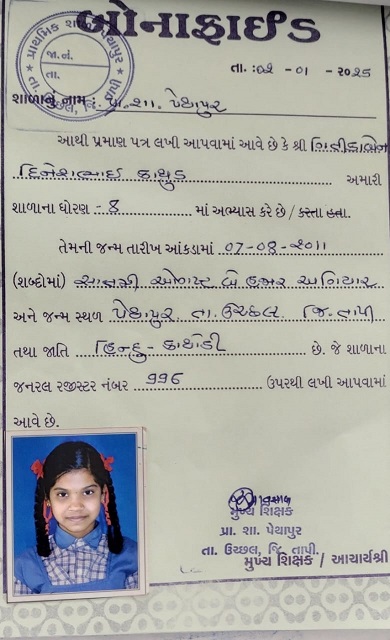 બોનાફાઈડ
પ્રાથમિક શાળા પેથાપુર
જા.નં.
તા.
તા. ઉચ્છલ, જિ. તાપી
તા. : ૦૨ - ૦૧ - ૨૦૨૫
શાળાનું નામ : પ્રા. શા. પેથાપુર
આથી પ્રમાણ પત્ર લખી આપવામાં આવે છે કે શ્રી
દિનેશભાઈ કાથુડ અમારી
શાળાના ધોરણ - 8 માં અભ્યાસ કરે છે / કરતા હતા.
તેમની જન્મ તારીખ આંકડામાં 07-08-૨૦૧૧
(શબ્દોમાં) સાતમી ઓગષ્ટ બે હજાર અગિયાર
અને જન્મ સ્થળ પેથાપુર તા. ઉચ્છલ જિ. તાપી
તથા જાતિ હિન્દુ - કાથોડી છે. જે શાળાના
જનરલ રજીસ્ટર નંબર 996 ઉપરથી લખી આપવામાં
આવે છે.
મુખ્ય શિક્ષક
પ્રા. શા. પેથાપુર
તા. ઉચ્છલ, જિ. તાપી.
મુખ્ય શિક્ષક / આચાર્યશ્રી